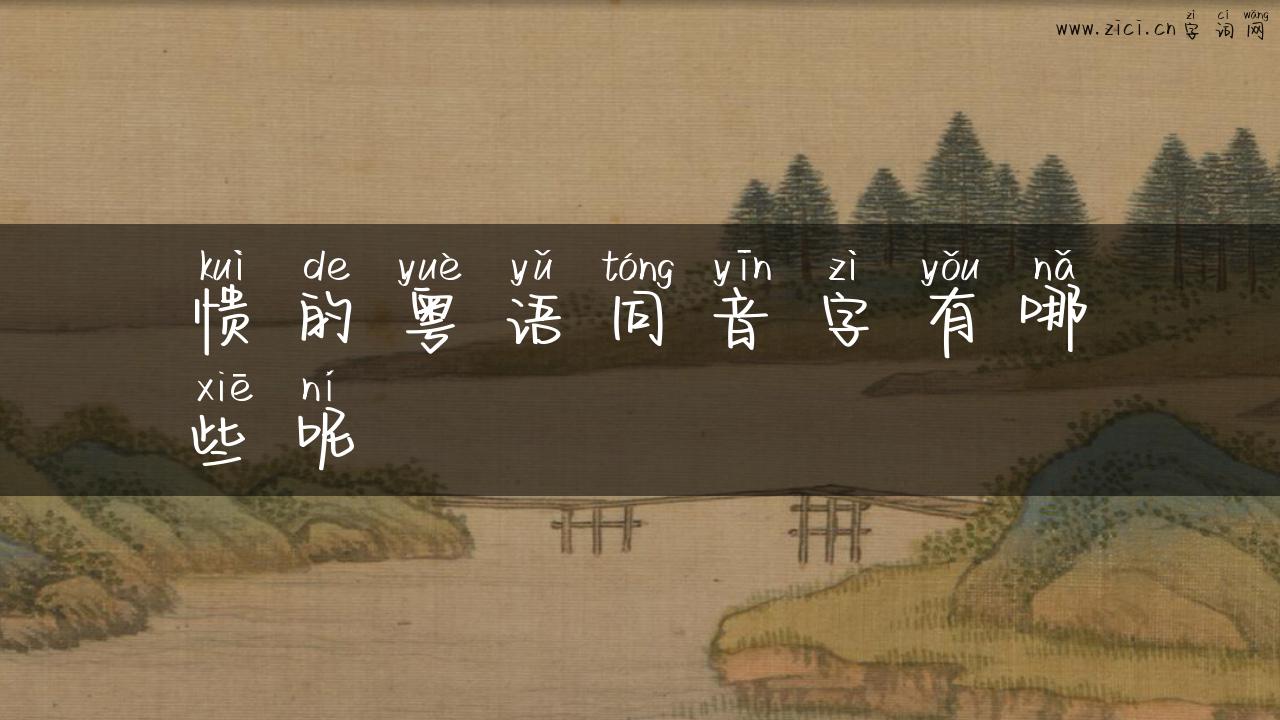 www.zici.cn 字词网
zì cí wǎng
kuì de yuè yǔ tóng yīn zì yǒu nǎ
愦的粤语同音字有哪
xiē ní
些呢